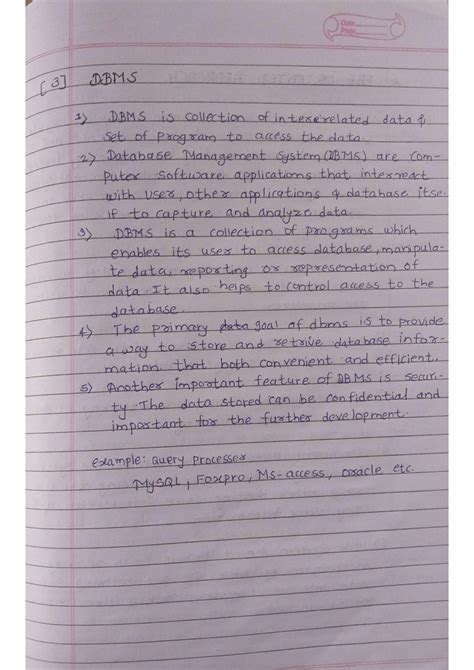 Date
Page
[3] DBMS
1) DBMS is collection of interrelated data &
set of program to access the data.
2) Database Management System (DBMS) are com-
puter software applications that interract
with user, other applications & database itse-
lf to capture and analyze data.
3) DBMS is a collection of programs which
enables its user to access database, manipula-
te data, reporting or representation of
data. It also helps to control access to the
database.
4) The primary data goal of dbms is to provide
a way to store and retrive database infor-
mation, that both convenient and efficient.
5) Another important feature of DBMS is securi-
ty. The data stored can be confidential and
important for the further development.
example: Query Processer
MySQL, Foxpro, Ms-access, oracle etc.